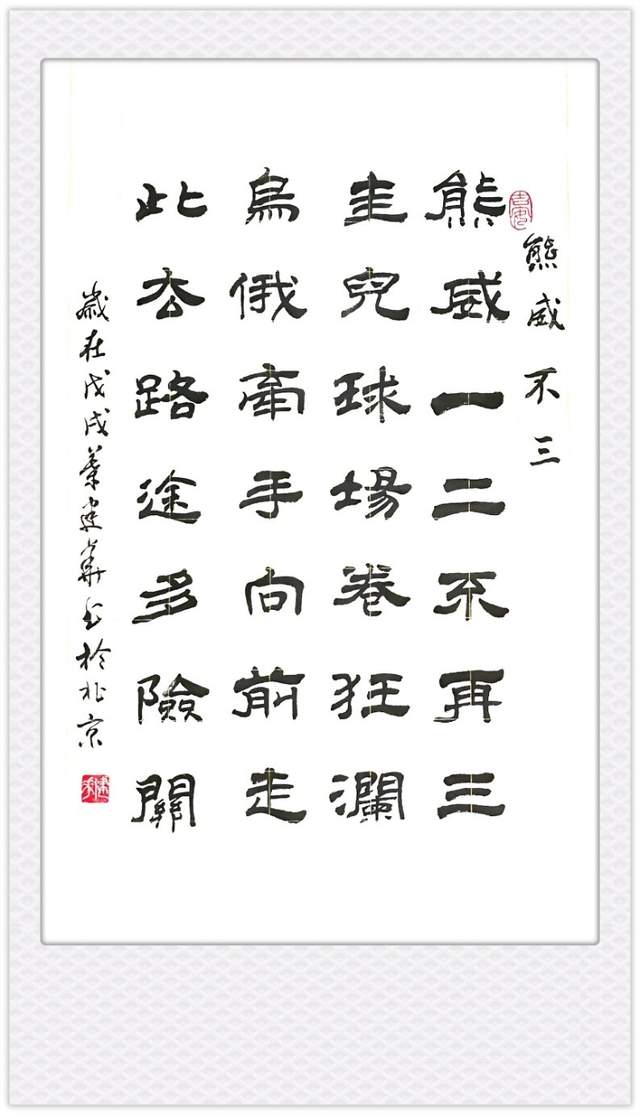 熊威不三
熊威一二不再三
圭兒球場卷狂瀾
烏俄牽手向前走
此去路途多險關
歲在戊戌葉建華书於北京